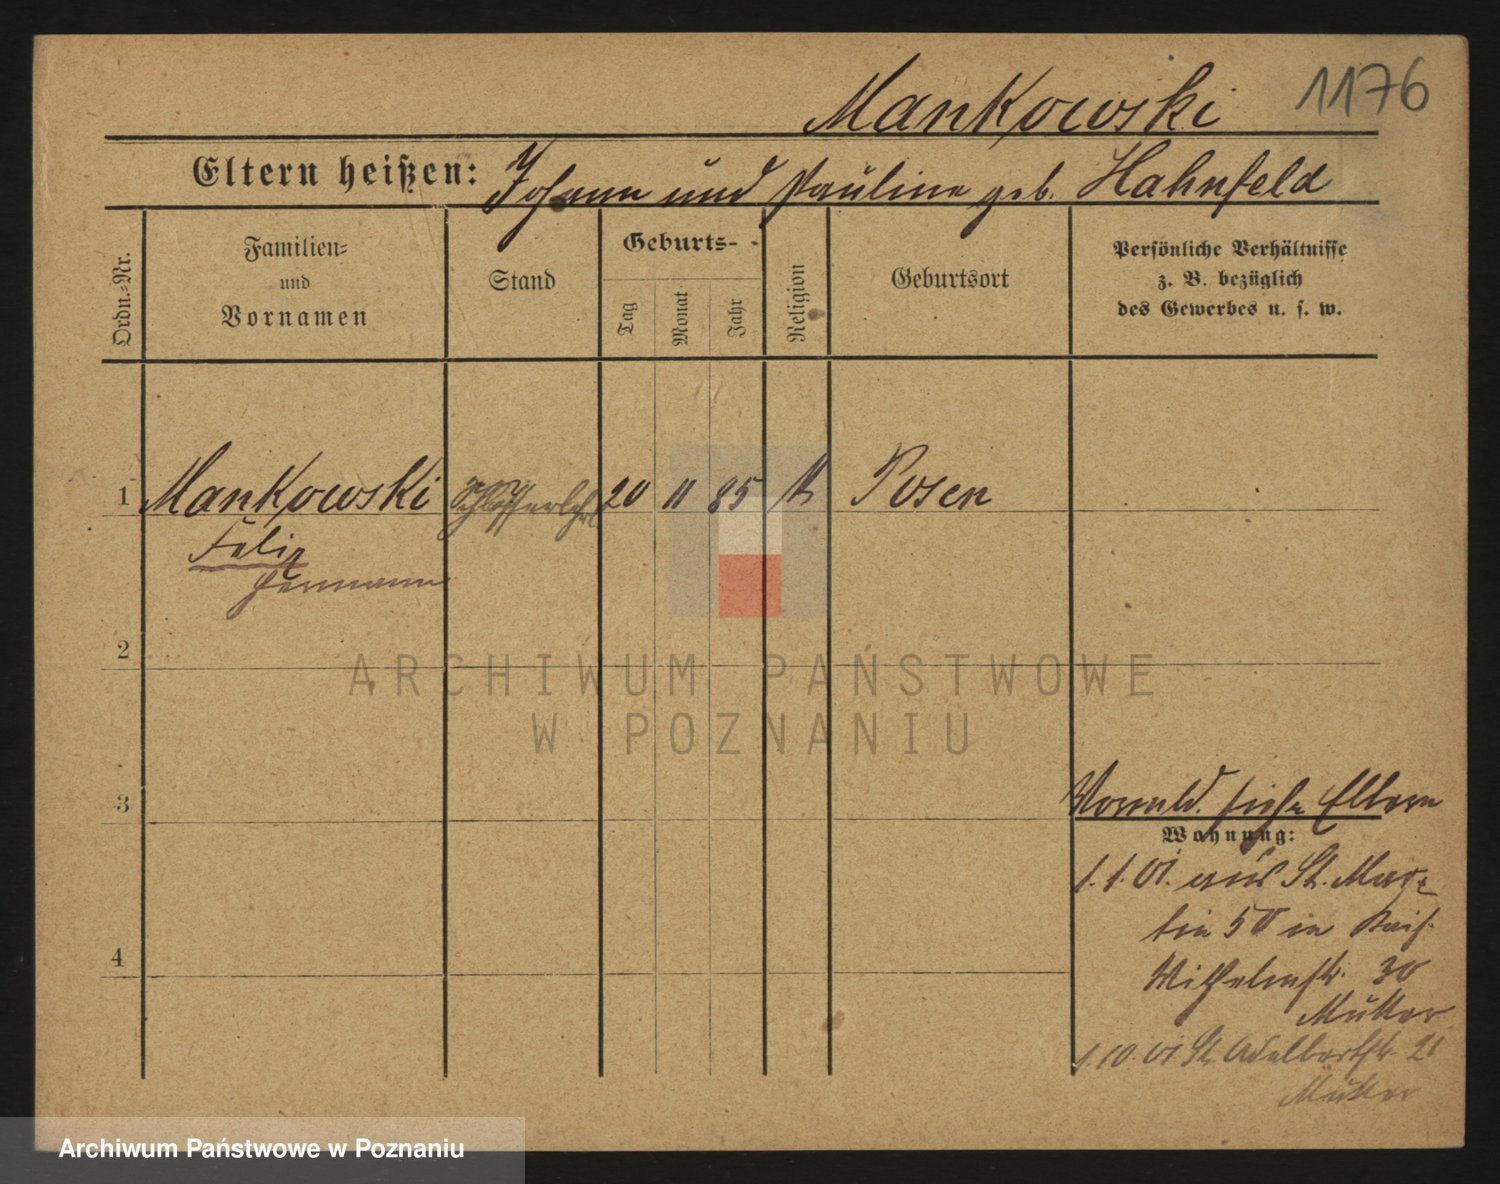 Mankowski 1176
Eltern heißen: Johann und Pauline geb. Hahnfeld
Ordn.-Nr.
Familien-
und
Vornamen
Stand
Geburts-
Tag
Monat
Jahr
Religion
Geburtsort
Persönliche Verhältnisse
z. B. bezüglich
des Gewerbes u. s. w.
1 Mankowski Schlosserlehrl 20 11 85 K Posen
Felix
Hermann
2
ARCHIWUM PAŃSTWOWE
W POZNANIU
3
siehe Eltern
Wohnung:
1.1.01. aus St. Mar-
tin in Kais.
Wilhelmstr. 30
Mutter
1.10.01 St. Adalbertstr. 21
Mutter
4
Archiwum Państwowe w Poznaniu